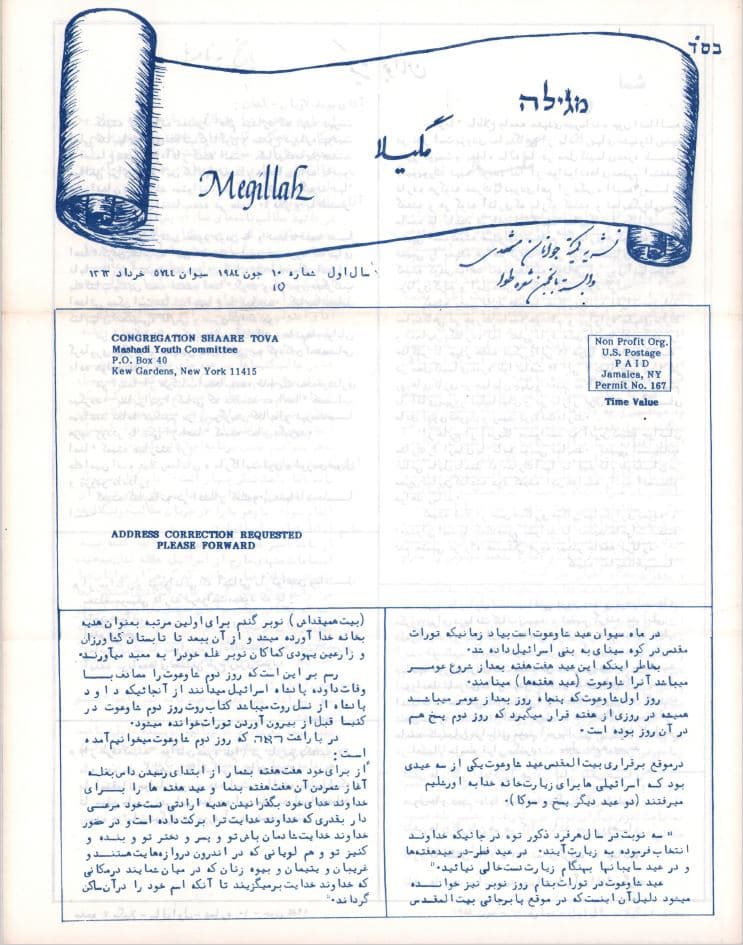 בס"ד
מגילה
مگیلا
Megillah
نشریه کمیته جوانان مشهدی
وابسته بانجمن شعره طوا
سال اول شماره ۱۰ جون ۱۹۸۴ سیوان ۵۷۴۴ خرداد ۱۳۶۳
10
CONGREGATION SHAARE TOVA
Mashadi Youth Committee
P.O. Box 40
Kew Gardens, New York 11415
Non Profit Org.
U.S. Postage
PAID
Jamaica, NY
Permit No. 167
Time Value
ADDRESS CORRECTION REQUESTED
PLEASE FORWARD
در ماه سیوان عید شاوعوت است بیاد زمانیکه تورات
مقدس در کوه سینای به بنی اسرائیل داده شد.
بخاطر اینکه این عید هفت هفته بعد از شروع عومر
میباشد آنرا شاوعوت (عید هفته‌ها) مینامند.
روز اول شاوعوت که پنجاه روز بعد از عومر میباشد
همیشه در روزی از هفته قرار میگیرد که روز دوم پسح هم
در آن روز بوده است.
در موقع برقراری بیت المقدس عید شاوعوت یکی از سه عیدی
بود که اسرائیلی ها برای زیارت خانه خدا به اورشلیم
میرفتند (دو عید دیگر پسح و سوکا).
"سه نوبت در سال هر فرد ذکور توه در جائیکه خداوند
انتخاب فرموده به زیارت آیند. در عید فطر-در عید هفته‌ها
و در عید سایبانها بهنگام زیارت دست خالی نیائید."
عید شاوعوت در تورات بنام روز نوبر نیز خوانده
میشود دلیل آن اینست که در موقع پابرجائی بیت المقدس
(بیت همیقداش) نوبر گندم برای اولین مرتبه بعنوان هدیه
بخانه خدا آورده میشد و از آن ببعد تا تابستان کشاورزان
و زارعین یهودی کماکان نوبر غله خود را به معبد میآورند.
رسم بر این است که روز دوم شاوعوت را مصادف با
وفات داود پادشاه اسرائیل میدانند از آنجائیکه داود
پادشاه از نسل روت میباشد کتاب روت روز دوم شاوعوت در
کنیسا قبل از بیرون آوردن تورات خوانده میشود.
در پاراشت ראה که روز دوم شاوعوت میخوانیم آمده
است:
"از برای خود هفت هفته بشمار از ابتدای رسیدن داس بغله
آغاز شمردن آن هفت هفته بنما و عید هفته ها را برای
خداوند خدای خود بگذرانیدن هدیه ارادتی دست خود مرعی
دار بقدری که خداوند خدایت ترا برکت داده است و در حضور
خداوند خدایت شادمان باش تو و پسر و دختر تو و بنده و
کنیز تو و هم لویانی که در اندرون دروازه‌هایت هستند و
غریبان و یتیمان و بیوه زنان که در میان شمایند در مکانی
که خداوند خدایت برمیگزیند تا آنکه اسم خود را در آن ساکن
گرداند."